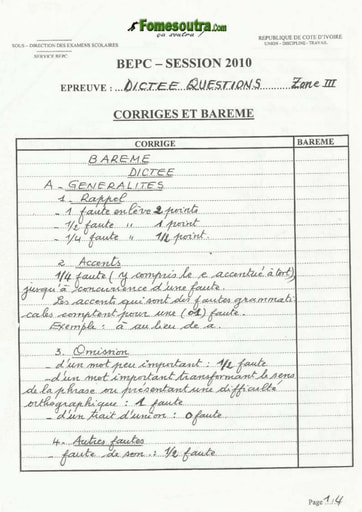 Fomesoutra.com
ça soutra !
SOUS – DIRECTION DES EXAMENS SCOLAIRES
SERVICE BEPC
REPUBLIQUE DE COTE D'IVOIRE
UNION – DISCIPLINE – TRAVAIL
BEPC – SESSION 2010
EPREUVE : DICTEE QUESTIONS Zone III
CORRIGES ET BAREME
CORRIGE
BAREME
BAREME
DICTEE
A - GENERALITES
1. Rappel
- 1 faute enlève 2 points
- 1/2 faute " 1 point
- 1/4 faute " 1/2 point.
2. Accents
1/4 faute (y compris le e accentué à tort)
jusqu'à concurrence d'une faute.
Les accents qui sont des fautes grammati-
cales comptent pour une (01) faute.
Exemple : à au lieu de a.
3. Omission
- d'un mot peu important : 1/2 faute
- d'un mot important transformant le sens
de la phrase ou présentant une difficulté
orthographique : 1 faute
- d'un trait d'union : 0 faute
4. Autres fautes
- faute de son : 1/2 faute
Page 1/4